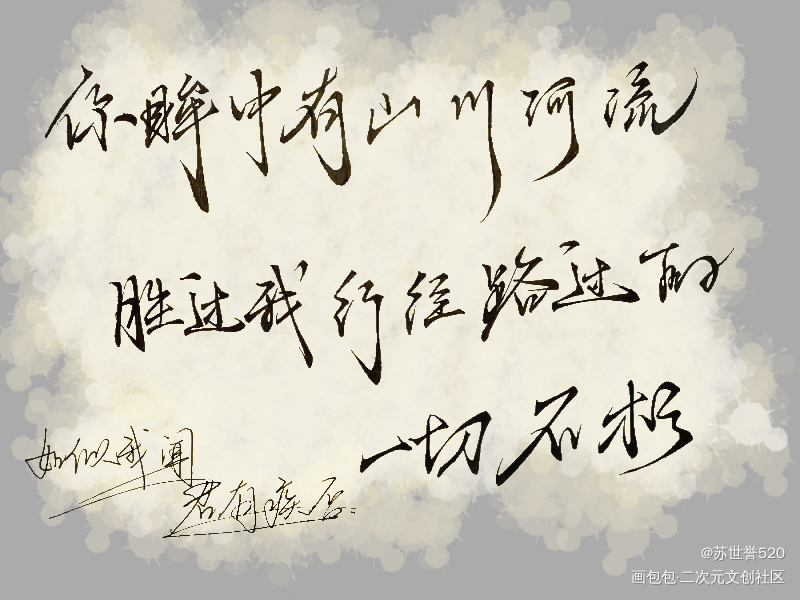 你眸中有山川河流
胜过我行径路过的
一切不朽
如似我闻
君有疾否
@苏世誉520
画包包·二次元文创社区